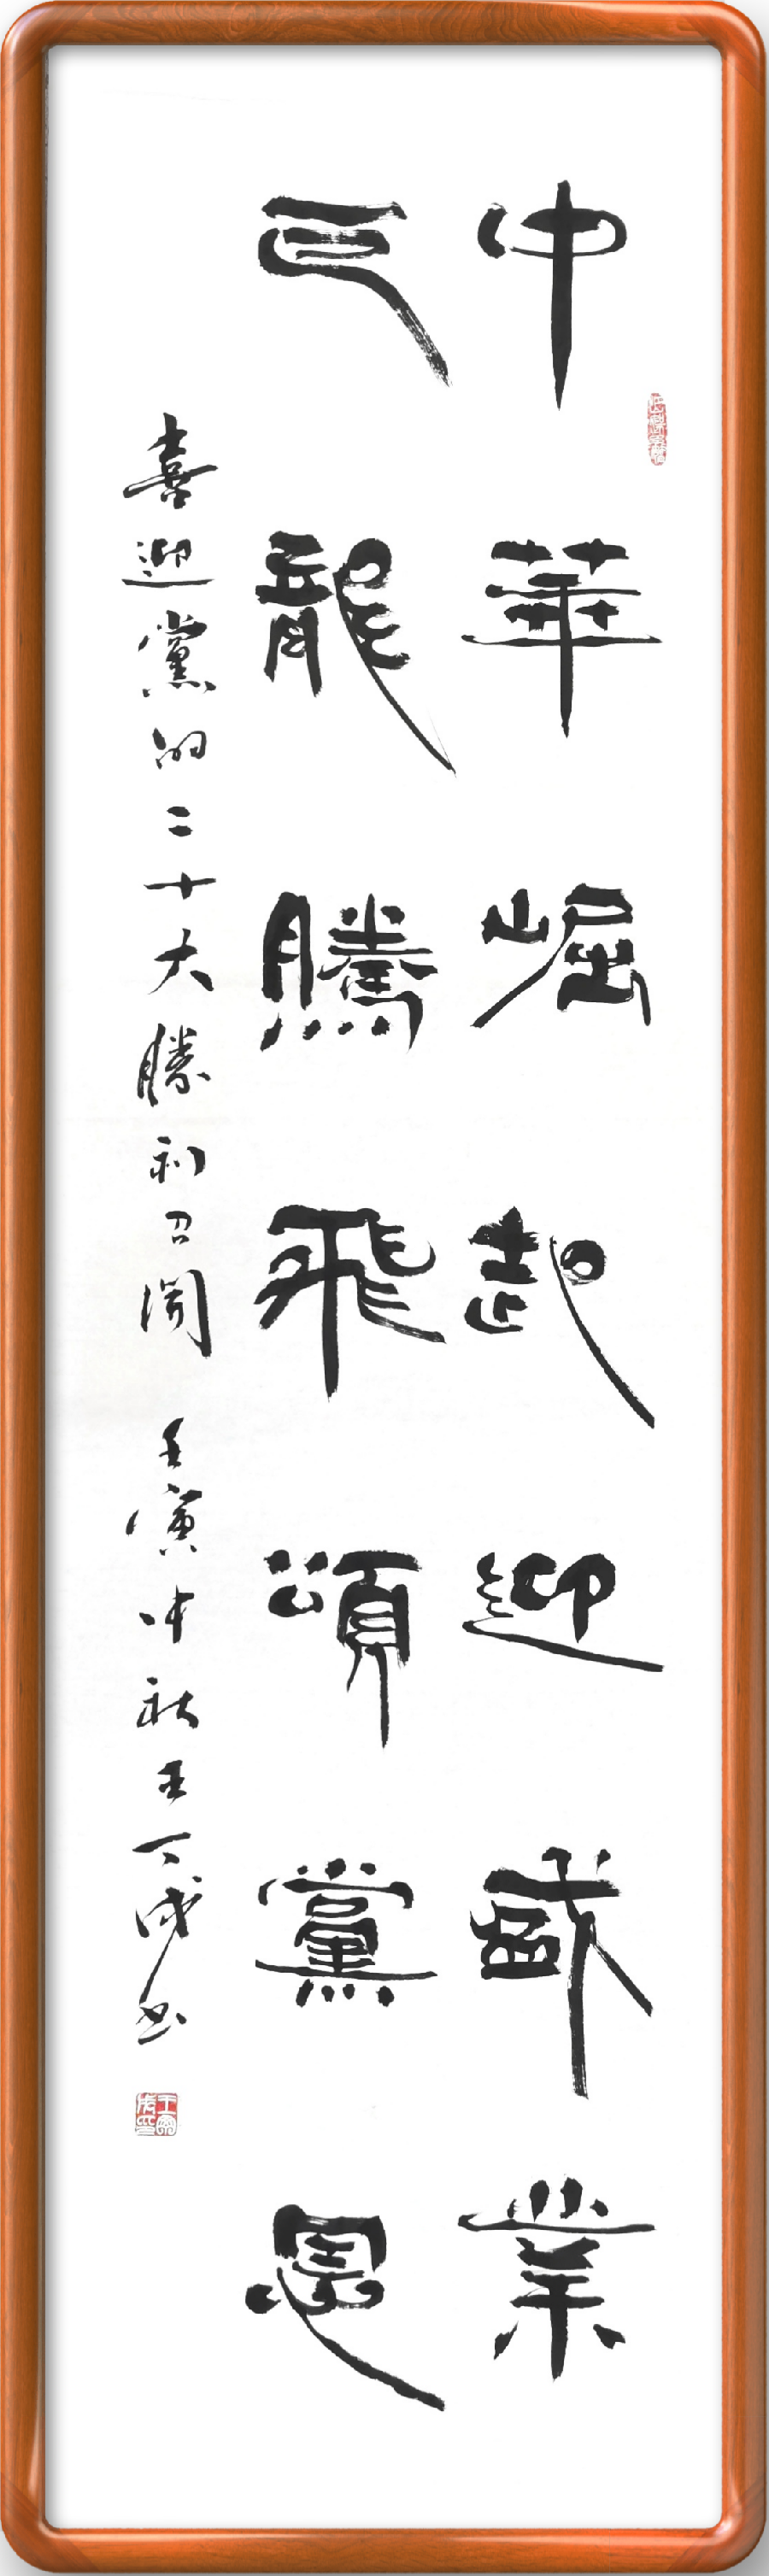 中華崛起迎盛業
巨龍騰飛頌黨恩
喜迎黨的二十大勝利召開 壬寅仲秋王丁成书